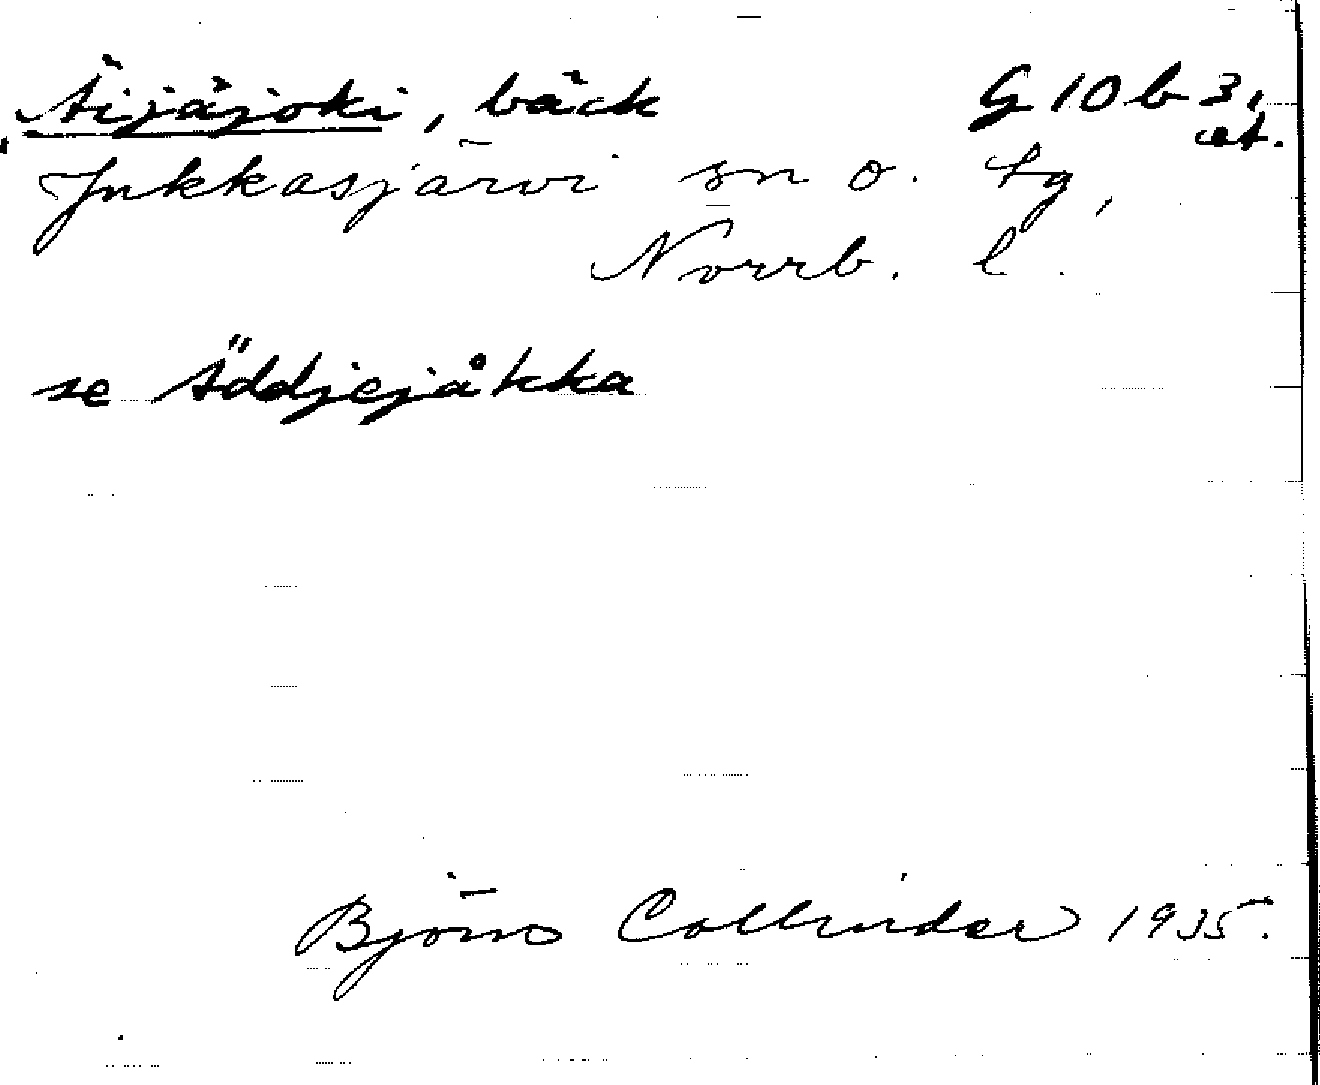 Äijäjoki, bäck G 10 b 3,
et.
Jukkasjärvi sn o. tg,
Norrb. l.
se Äddjejåkka
Björn Collinder 1935.